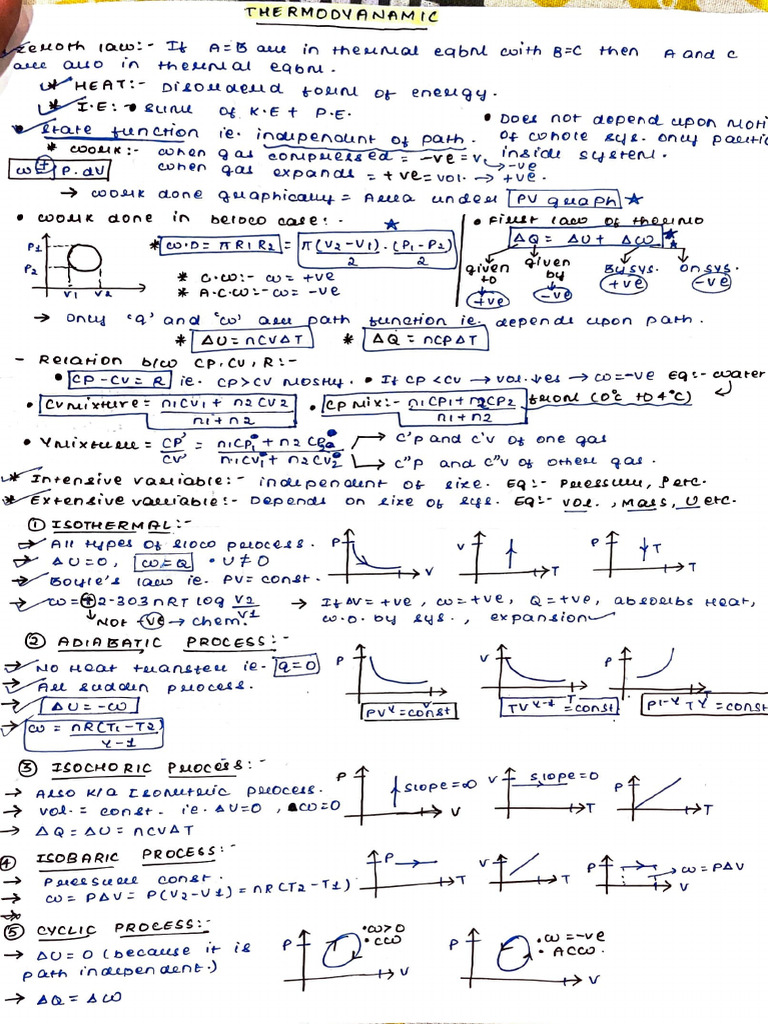 THERMODYANAMIC
Zeroth law:- If A=B are in thermal eqbm with B=C then A and C
are also in thermal eqbm.
* HEAT:- Disordered form of energy.
* I.E:- • sum of K.E + P.E.
• Does not depend upon motion
of whole sys. only particles
inside system.
* State function ie. independent of path.
* work:- when gas compressed = -ve = V → -ve
w = + P.dV
when gas expands = +ve = vol. → +ve.
→ work done graphically = Area under PV graph ★
• work done in below case:-
P1
P2
V1 V2
* W.D = π R1 R2 = π (V2-V1)/2 . (P1-P2)/2 ★
* C.W:- W = +ve
* A.C.W:- W = -ve
• First law of thermo
ΔQ = ΔU + ΔW ★
given to +ve
given by -ve
By sys. +ve
on sys. -ve
→ Only 'q' and 'w' are path function ie. depends upon path.
* ΔU = nCVΔT * ΔQ = nCPΔT
- Relation b/w CP, CV, R:-
• CP - CV = R ie. CP > CV mostly. • If CP < CV → vol. ↓es → W = -ve Eq:- water
from (0°C to 4°C)
• CV mixture = n1CV1 + n2CV2 / n1 + n2 • CP mix:- n1CP1 + n2CP2 / n1 + n2
• γ mixture = CP'/CV' = n1CP1 + n2CP2 / n1CV1 + n2CV2
→ C'P and C'V of one gas
→ C"P and C"V of other gas.
* Intensive variable:- independent of size. Eq:- Pressure, ρ etc.
* Extensive variable:- Depends on size of sys. Eq:- vol., Mass, U etc.
① ISOTHERMAL:-
→ All types of slow process.
→ ΔU=0, W=Q • U≠0
→ Boyle's law ie. PV = const.
P V V T P T T
→ W = + 2.303 nRT log V2/V1
Not -ve → chem.
→ If ΔV = +ve, W = +ve, Q = +ve, absorbs heat,
w.d. by sys., expansion
② ADIABATIC PROCESS:-
→ No Heat transfer ie. q=0
→ All sudden process.
→ ΔU = -W
→ W = nR(T1-T2)/γ-1
P V V T P T
PV^γ = const TV^γ-1 = const P^1-γ T^γ = const
③ ISOCHORIC PROCESS:-
→ Also k/a Isometric process.
→ vol. = const. ie. ΔU=0, W=0
→ ΔQ = ΔU = nCVΔT
P slope=∞ V
V slope=0 T
P T
④ ISOBARIC PROCESS:-
→ Pressure const.
→ W = PΔV = P(V2-V1) = nR(T2-T1)
P T V T P V W=PΔV
⑤ CYCLIC PROCESS:-
→ ΔU = 0 (because it is
path independent.)
→ ΔQ = ΔW
P • W>0
• CW
V
P • W = -ve
• ACW.
V